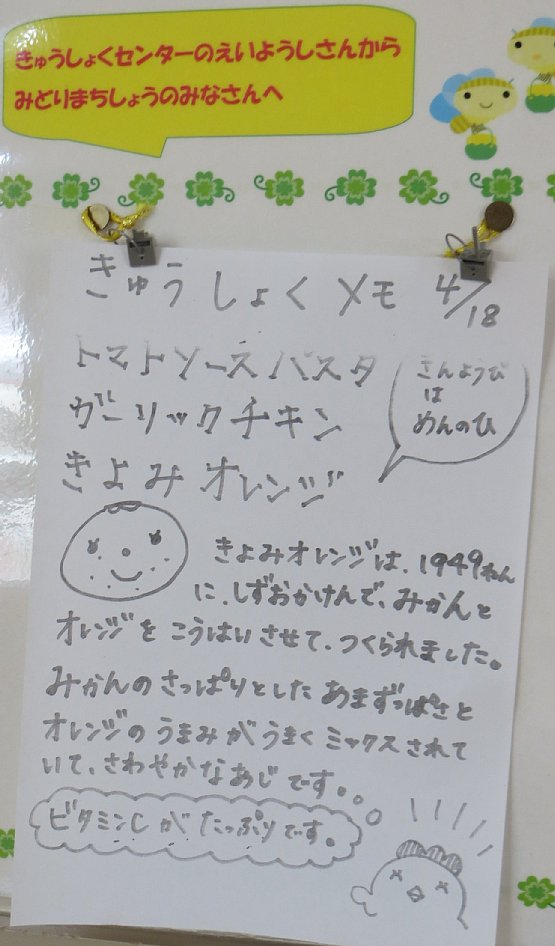 きゅうしょくセンターのえいようしさんから
みどりまちしょうのみなさんへ
きゅうしょくメモ 4/18
トマトソースパスタ
ガーリックチキン
きよみオレンジ
きんようび
は
めんのひ
きよみオレンジは、1949ねん
に、しずおかけんで、みかんと
オレンジをこうはいさせて、つくられました。
みかんのさっぱりとしたあまずっぱさと
オレンジのうまみがうまくミックスされて
いて、さわやかなあじです。
ビタミンCがたっぷりです。